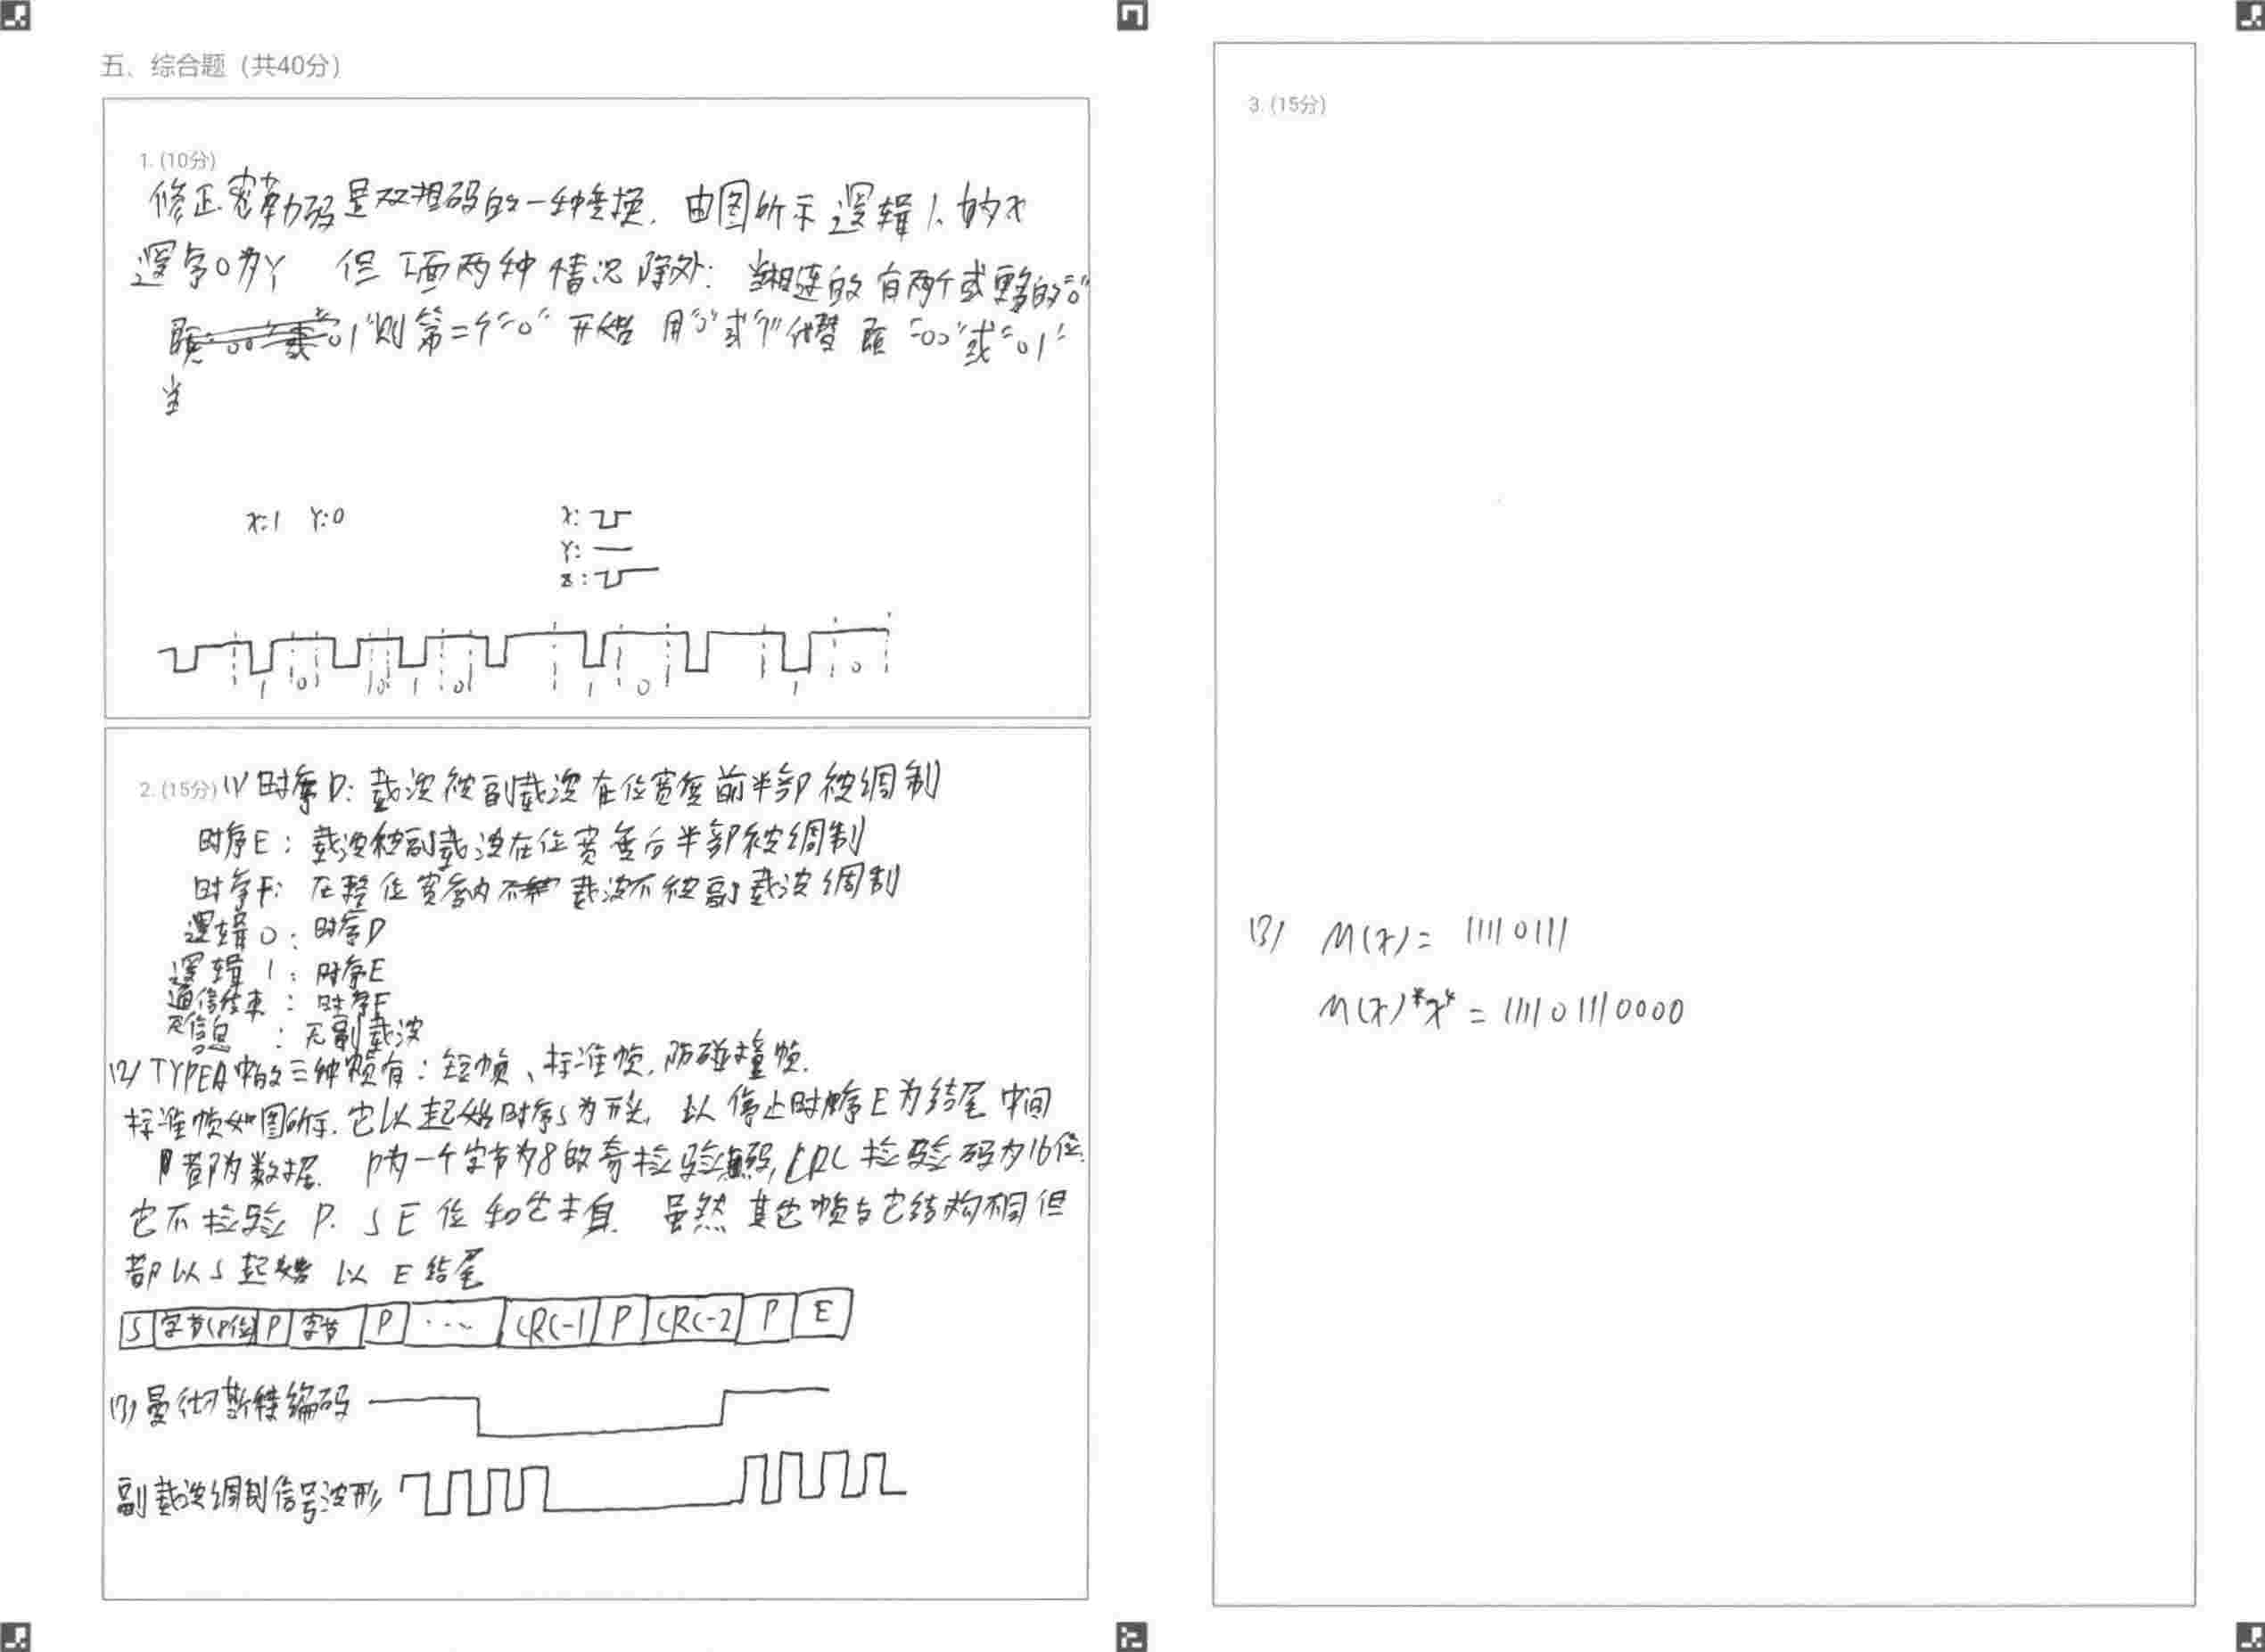 五、综合题（共40分）
1. (10分)
修正密勒码是双相码的一种变换. 由图所示 逻辑1 为X
逻辑0为Y 但下面两种情况除外: 当相连的有两个或更多的“0”
则第二个“0”开始 用“0”或“1”代替 跟“00”或“01”
当
X:1 Y:0
X:
Y:
Z:
1 0 0 1 0 1 0 1 0
2. (15分) (1) 时序D: 载波被副载波在位宽度前半部被调制
时序E: 载波被副载波在位宽度后半部被调制
时序F: 在整位宽度内 载波不被副载波调制
逻辑0: 时序D
逻辑1: 时序E
通信结束: 时序F
无信息: 无副载波
(2) TYPEA中的三种帧有: 短帧、标准帧, 防碰撞帧.
标准帧如图所示. 它以起始时序S为开头, 以停止时序E为结尾 中间
都为数据. P为一个字节为8的奇检验码, CRC检验码为16位.
它不检验 P. S E 位和它本身. 虽然其它帧与它结构不同 但
都以S起始 以E结尾
S 字节(8位) P 字节 P ... CRC-1 P CRC-2 P E
(3) 曼彻斯特编码
副载波调制信号波形
3. (15分)
(3) M(x) = 11110111
M(x)*x⁴ = 111101110000